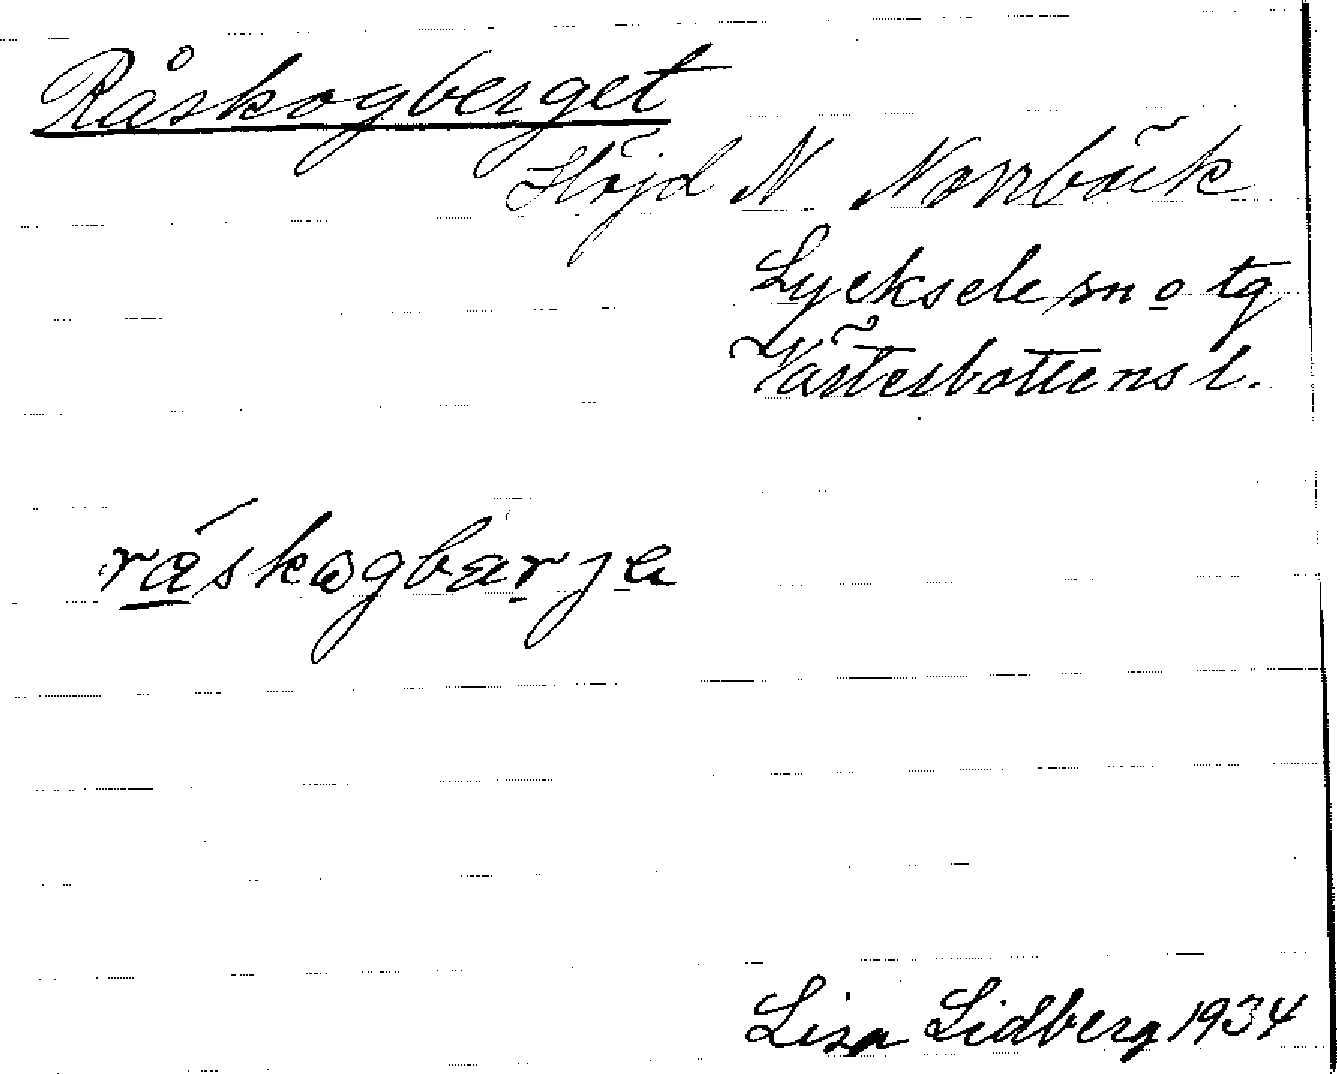 Råskogberget
Höjd N Norrbäck
Lycksele sn o tg
Västerbottens l.
råskogbærja
Lisa Lidberg 1934